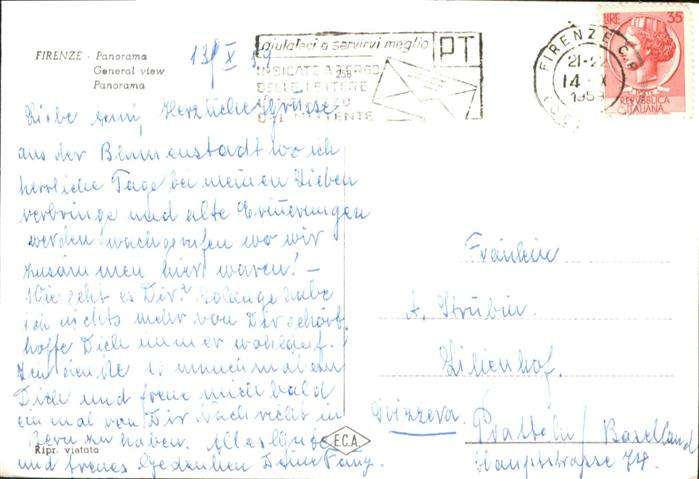 FIRENZE - Panorama
General view
Panorama
13/X 59
aiutateci a servirvi meglio
PT
INDICATE A TERGO
DELLE LETTERE
MITTENTE
FIRENZE
21-22
14 X
1959
LIRE 35
REPVBBLICA
ITALIANA
Liebe Herzliche Grüsse
aus der Blumenstadt wo ich
herrliche Tage bei meinen Lieben
verbringe und alte Erinnerungen
werden wachgerufen wo wir
zusammen hier waren! -
Wie geht es Dir? Solange habe
ich nichts mehr von Dir gehört
hoffe Dich immer wohlauf.
manchmal an
Dich und freue mich bald
einmal von Dir Nachricht in
Bern zu haben. Alles Liebe
und treues Gedenken Deine Fany.
Fräulein
A. Strübin.
Lilienhof.
Svizzera Pratteln / Baselland
Hauptstrasse 74.
E.C.A.
Ripr. vietata